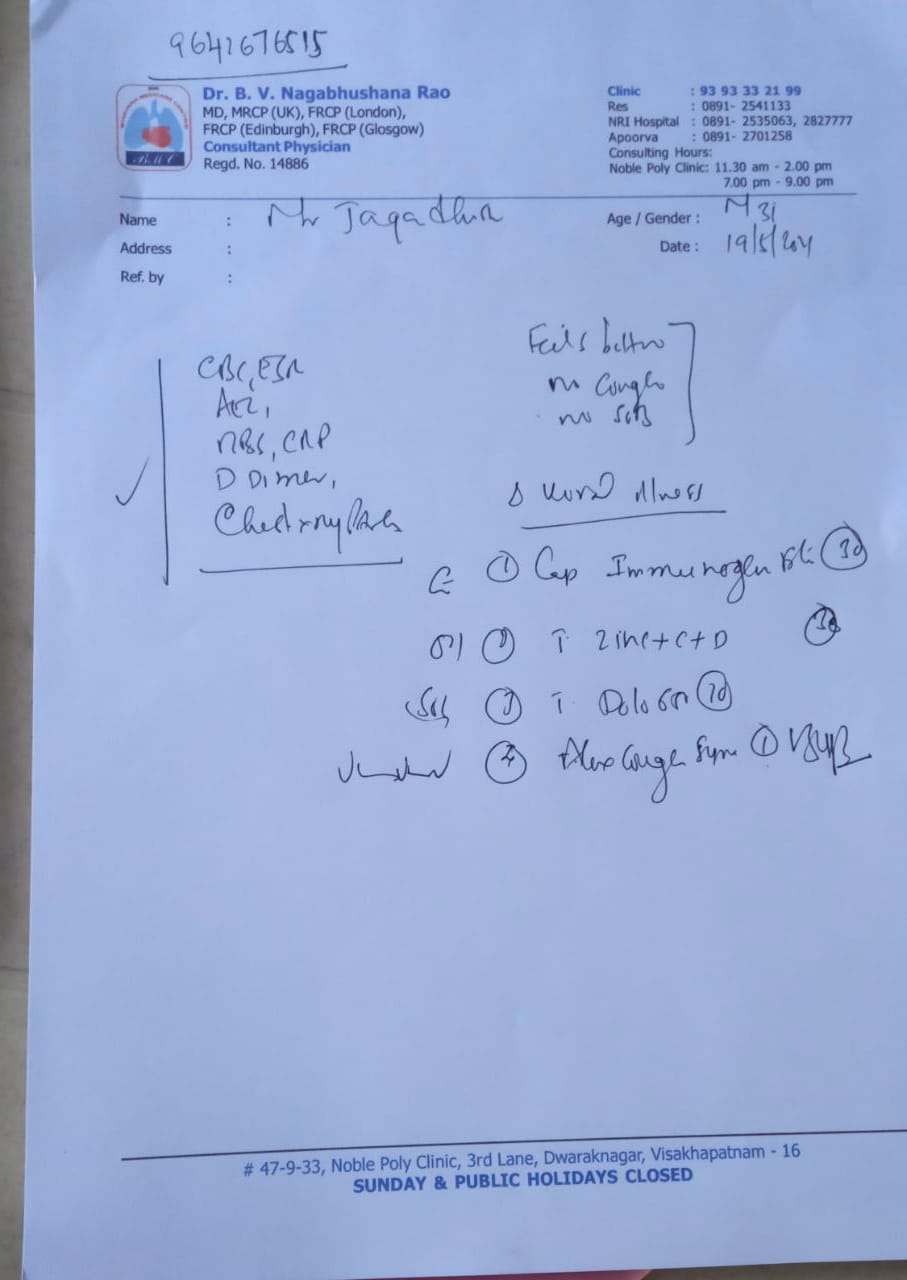 9641676515
Dr. B. V. Nagabhushana Rao
MD, MRCP (UK), FRCP (London),
FRCP (Edinburgh), FRCP (Glosgow)
Consultant Physician
Regd. No. 14886
Clinic : 93 93 33 21 99
Res : 0891- 2541133
NRI Hospital : 0891- 2535063, 2827777
Apoorva : 0891- 2701258
Consulting Hours:
Noble Poly Clinic: 11.30 am - 2.00 pm
7.00 pm - 9.00 pm
Name : Mr Jagadhir
Age / Gender : M 31
Address :
Date : 19/5/
Ref. by :
CBC, ESR
RBS, CRP
D Dimer,
Chest xray
Feels better
no Cough
no SOB
Viral illness
① Cap Immunogen
T Zinc+C+D
T Dolo 650
④ Alex Cough Syrup ①
# 47-9-33, Noble Poly Clinic, 3rd Lane, Dwaraknagar, Visakhapatnam - 16
SUNDAY & PUBLIC HOLIDAYS CLOSED